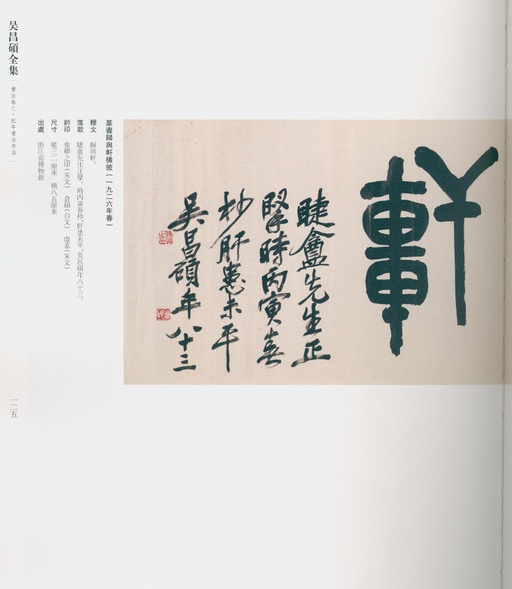 軒
睫盦先生正
擘時丙寅春
杪肝患未平
吳昌碩年八十三
篆書歸與軒橫披（一九二六年春）
釋文 歸與軒。
落款 睫盦先生正擘，時丙寅春杪，肝患未平，吳昌碩年八十三。
鈐印 俊卿之印（朱文） 倉碩（白文） 虛素（朱文）
尺寸 縱三二厘米 橫八五厘米
出處 浙江省博物館
吳昌碩全集
書法卷二·紀年書法作品
一二五